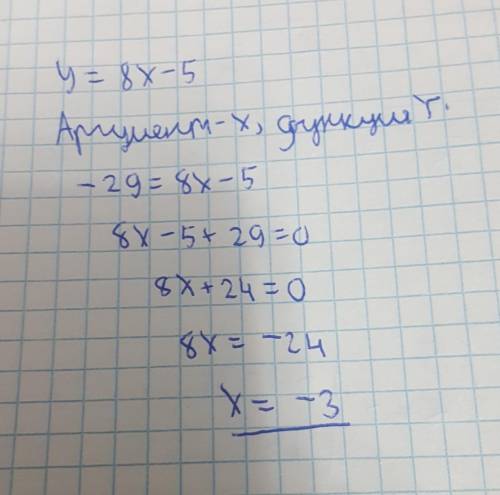 y = 8x - 5
Аргумент - x, функция Y.
- 29 = 8x - 5
8x - 5 + 29 = 0
8x + 24 = 0
8x = -24
x = -3